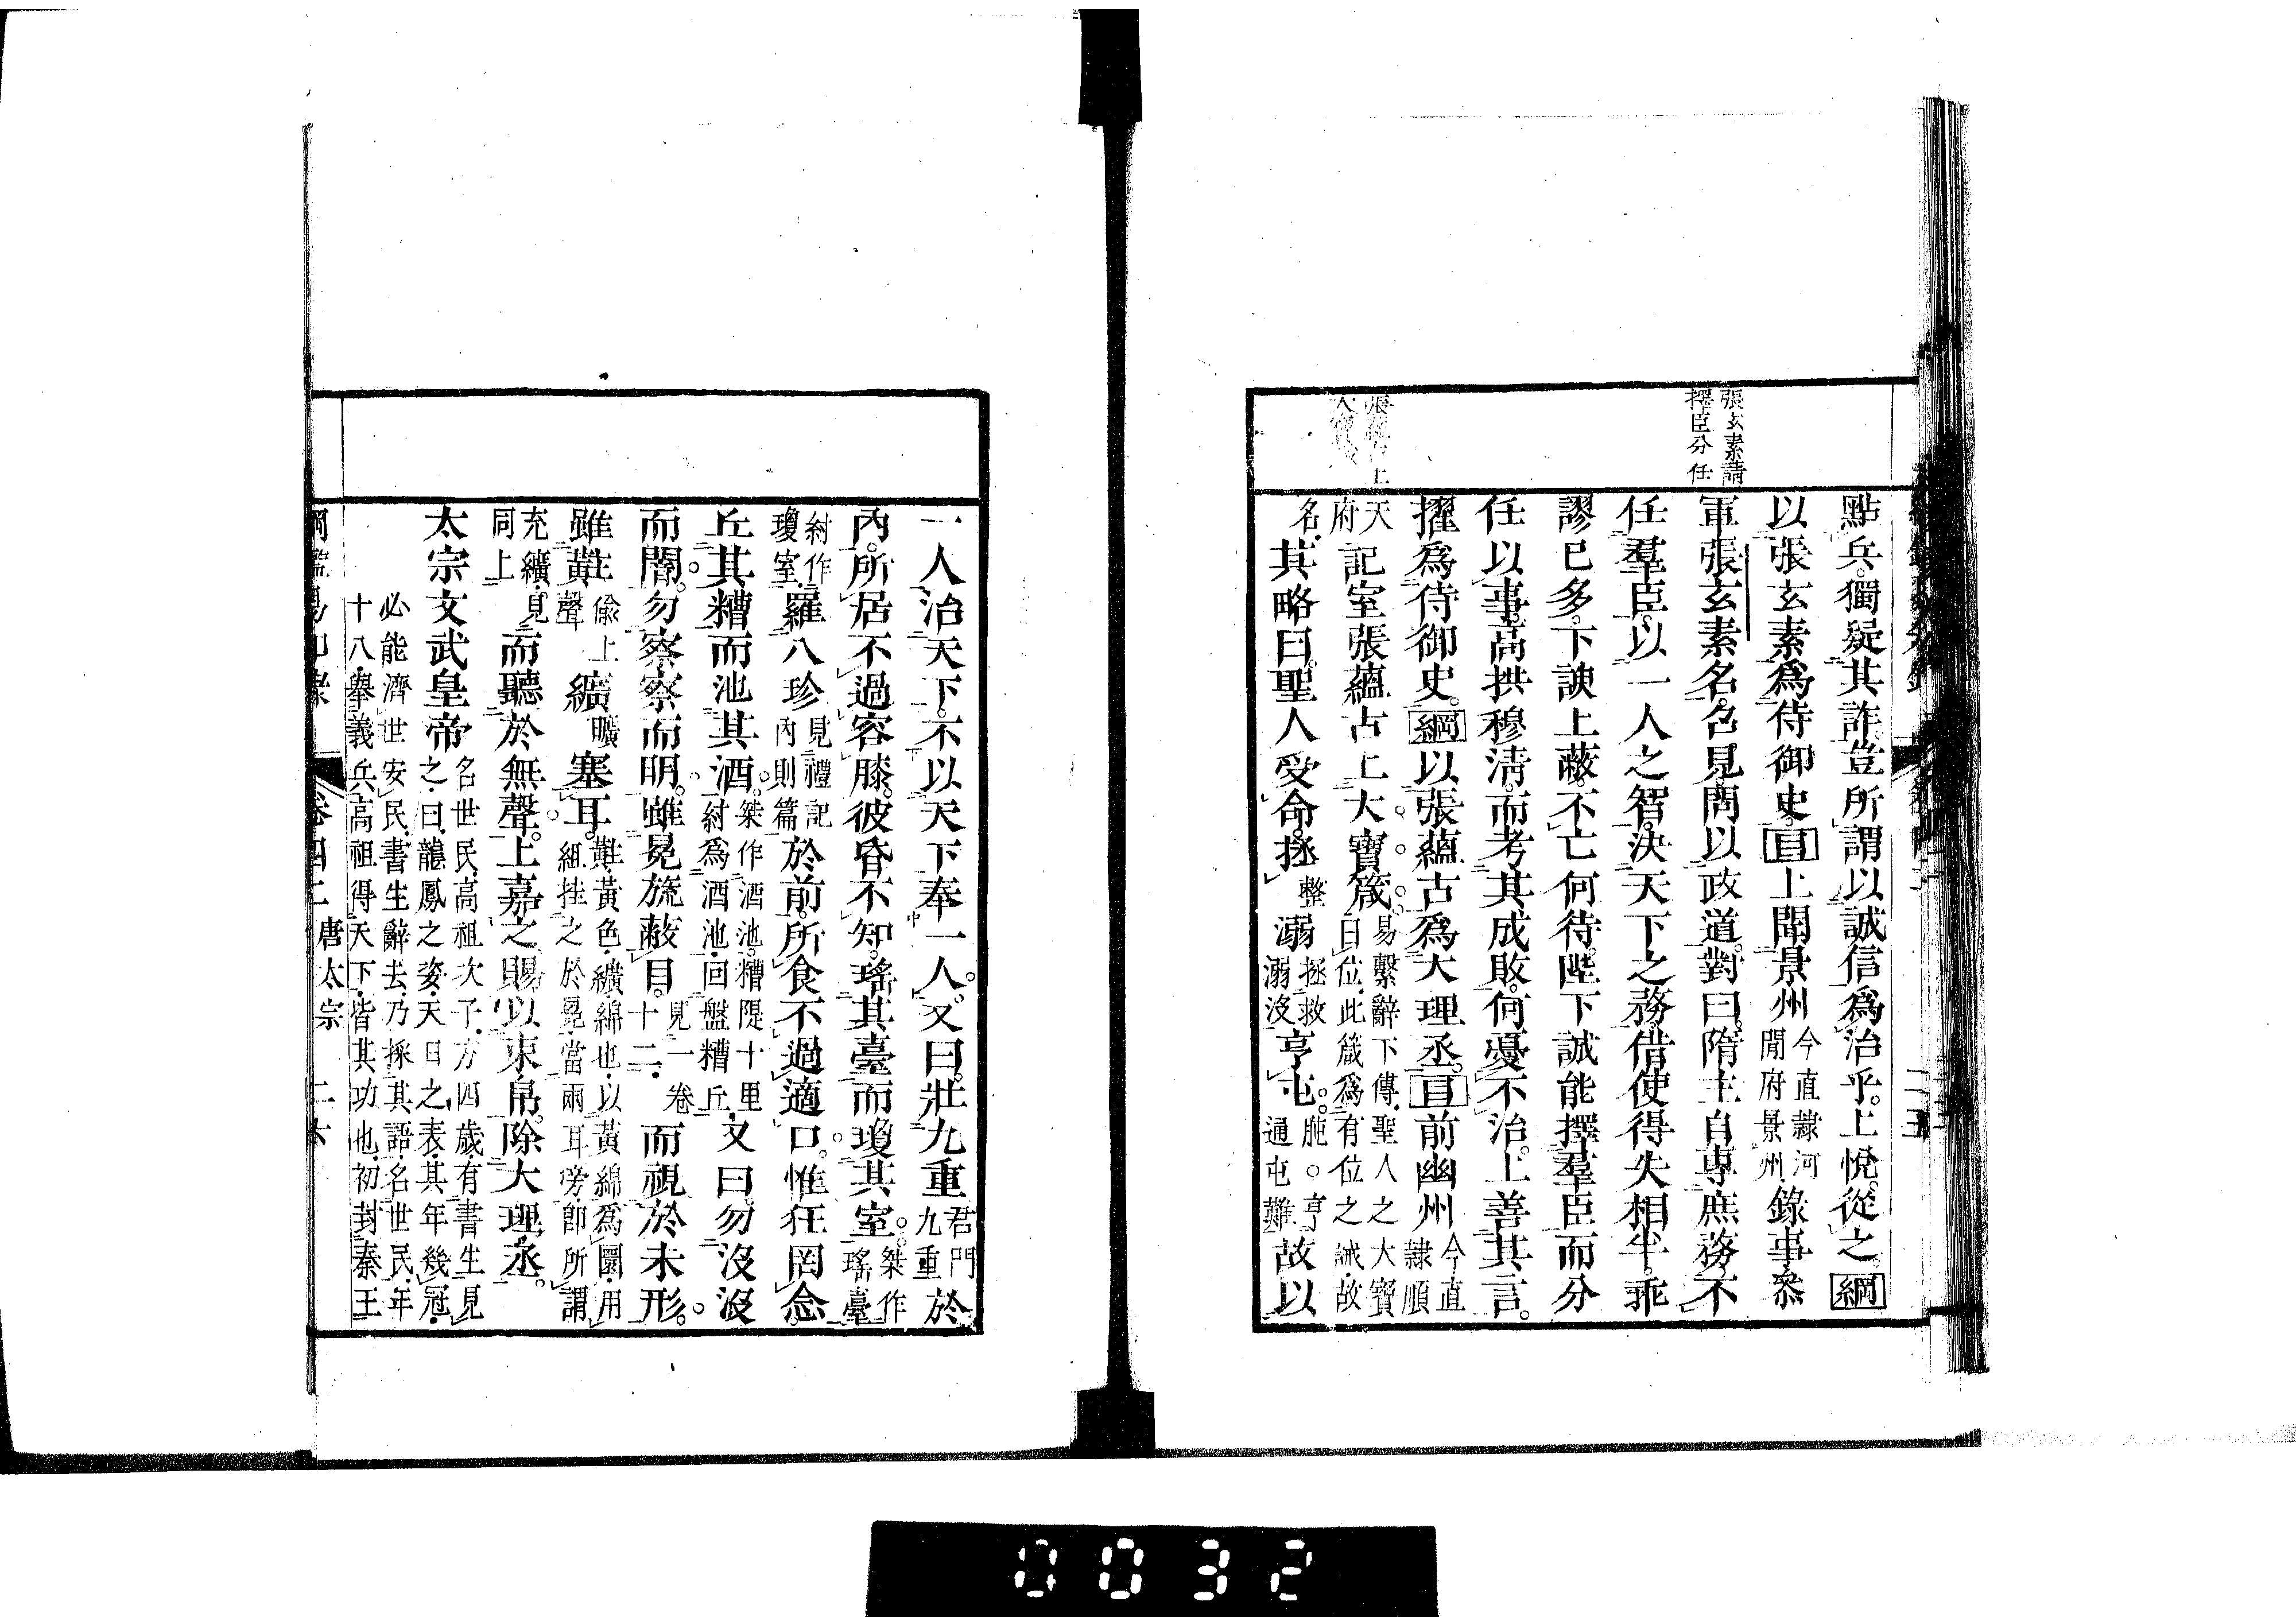 張玄素請
擇臣分任
點兵。獨疑其詐。豈所謂以誠信爲治乎。上悅。從之。綱
以張玄素爲侍御史。目上聞景州今直隸河間府景州。錄事參
軍張玄素名。召見。問以政道。對曰。隋主自專庶務。不
任羣臣。以一人之智。決天下之務。借使得失相半。乖
謬已多。下諛上蔽。不亡何待。陛下誠能擇羣臣而分
任以事。高拱穆清。而考其成敗。何憂不治。上善其言。
擢爲侍御史。綱以張蘊古爲大理丞。目前幽州今直隸順
天府記室張蘊古上大寶箴。易繫辭下傳。聖人之大寶曰位。此箴爲有位之誡。故
名。其略曰。聖人受命。拯整溺拯救溺沒亨屯。肫。○亨通屯難故以
一人治天下。不以天下奉一人。又曰。壯九重君門九重於
內。所居不過容膝。彼昏不知。瑤其臺而瓊其室。桀作瑤臺
紂作瓊室。羅八珍見禮記內則篇於前。所食不過適口。惟狂罔念。
丘其糟而池其酒。桀作酒池。糟隄十里紂爲酒池。回盤糟丘。又曰。勿沒沒
而闇。勿察察而明。雖冕旒蔽目。見一卷十二。而視於未形。
雖黈偷上聲纊曠塞耳。黈黃色。纊綿也。以黃綿爲圜。用組挂之於冕。當兩耳旁。卽所謂
充纊。見同上而聽於無聲。上嘉之。賜以束帛。除大理丞。
太宗文武皇帝名世民。高祖次子。方四歲。有書生見之。曰。龍鳳之姿。天日之表。其年幾冠。
必能濟世安民。書生辭去。乃採其語。名世民。年
十八。舉義兵。高祖得天下。皆其功也。初封秦王
卷四十 唐太宗 二六
0032